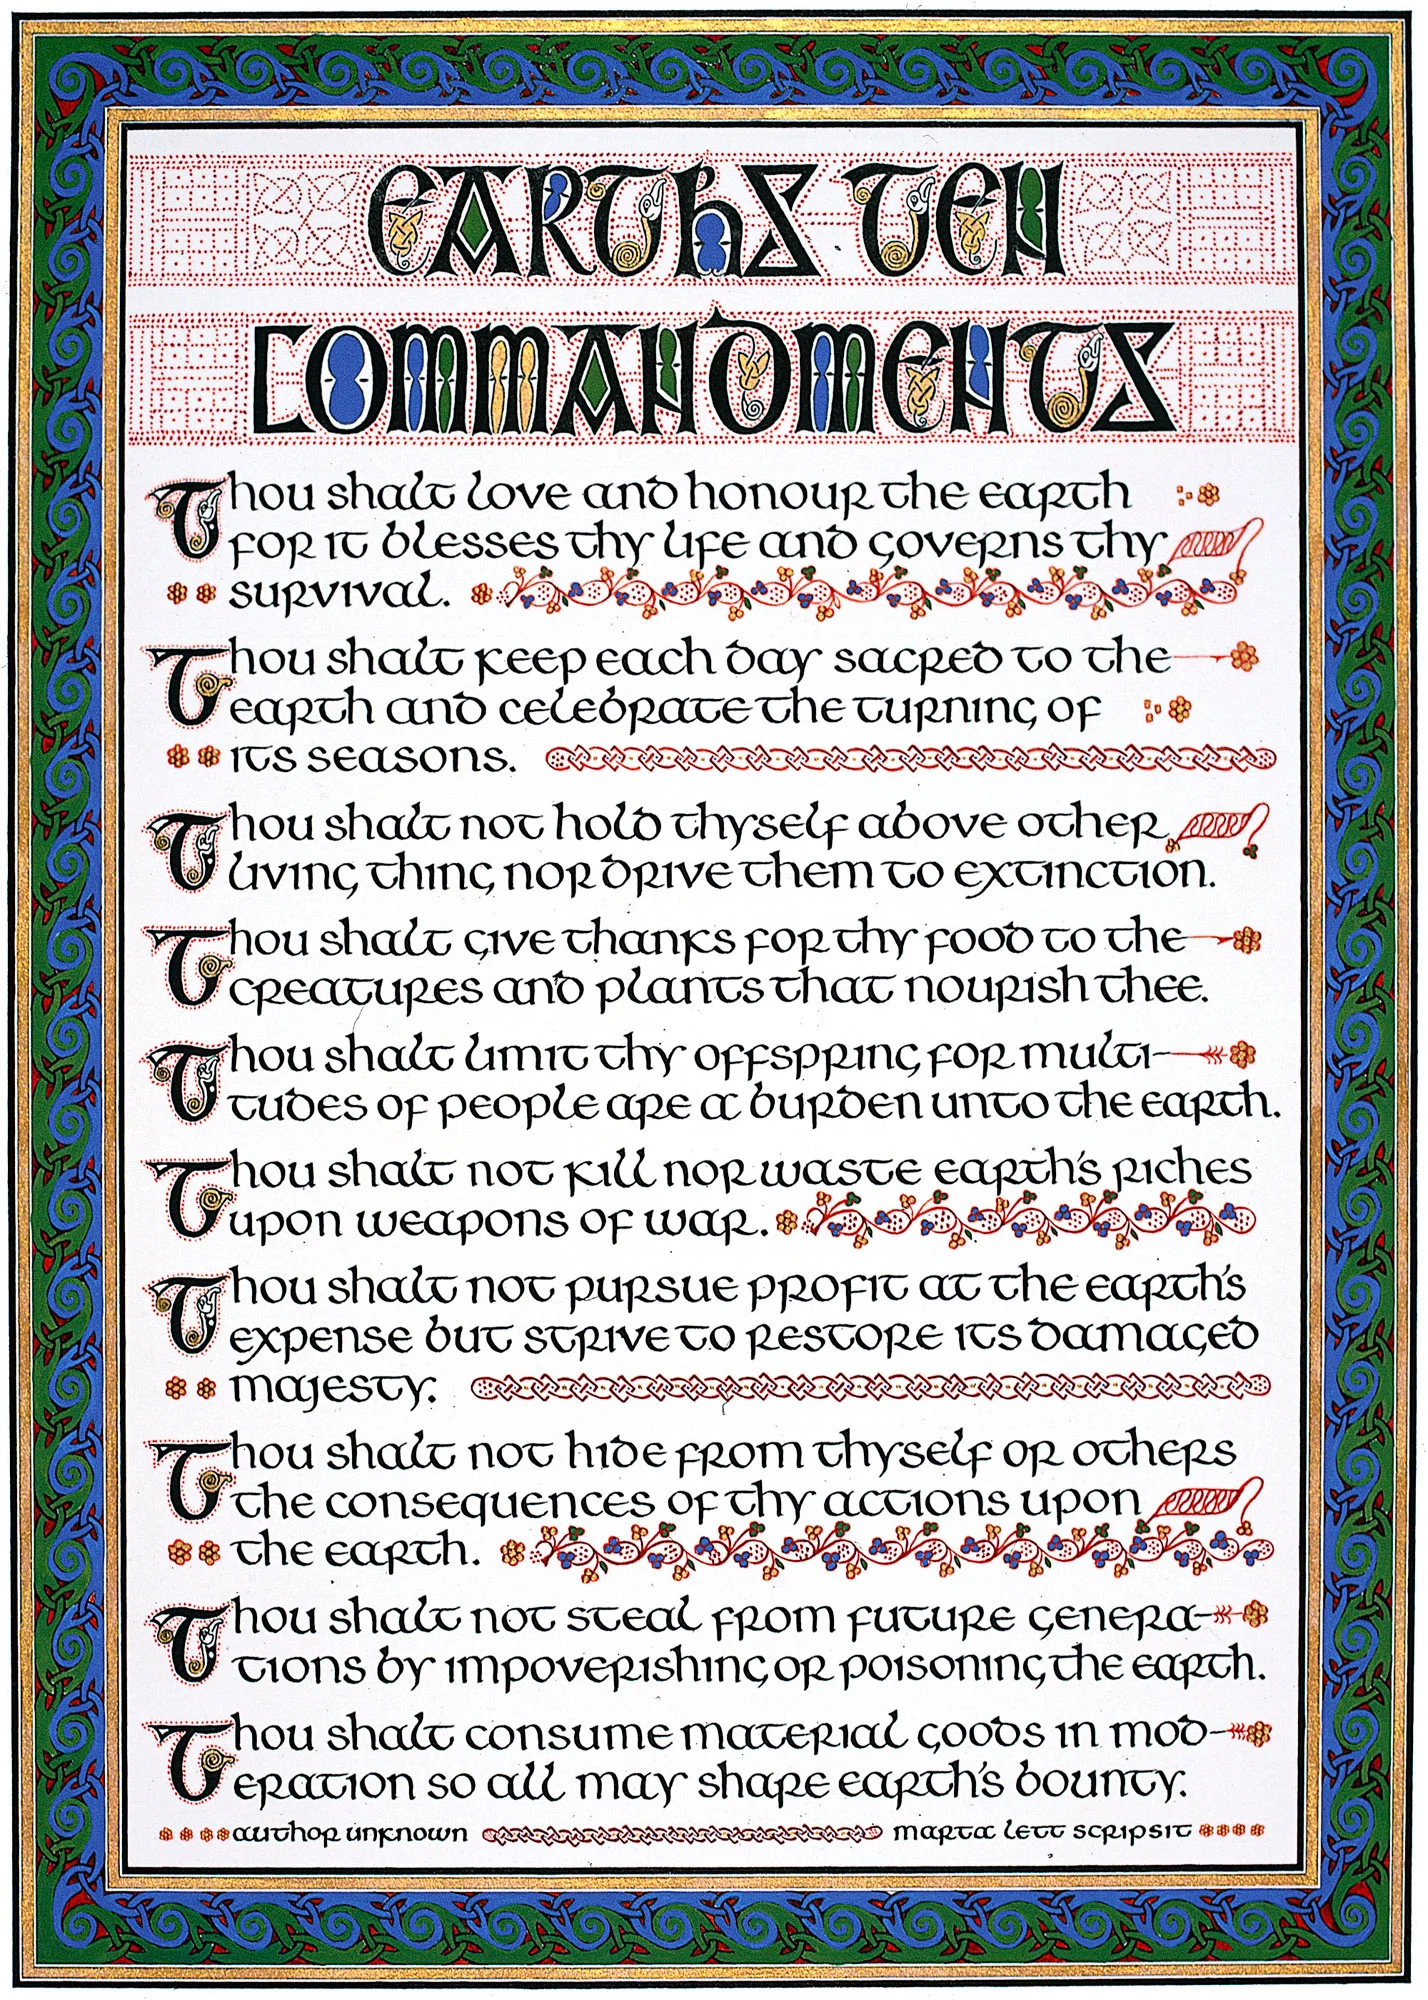 EARTHS TEN
COMMANDMENTS
Thou shalt love and honour the earth
for it blesses thy life and governs thy
survival.
Thou shalt keep each day sacred to the
earth and celebrate the turning of
its seasons.
Thou shalt not hold thyself above other
living thing nor drive them to extinction.
Thou shalt give thanks for thy food to the
creatures and plants that nourish thee.
Thou shalt limit thy offspring for multi-
tudes of people are a burden unto the earth.
Thou shalt not kill nor waste earth's riches
upon weapons of war.
Thou shalt not pursue profit at the earth's
expense but strive to restore its damaged
majesty.
Thou shalt not hide from thyself or others
the consequences of thy actions upon
the earth.
Thou shalt not steal from future genera-
tions by impoverishing or poisoning the earth.
Thou shalt consume material goods in mod-
eration so all may share earth's bounty.
author unknown marta lett scripsit